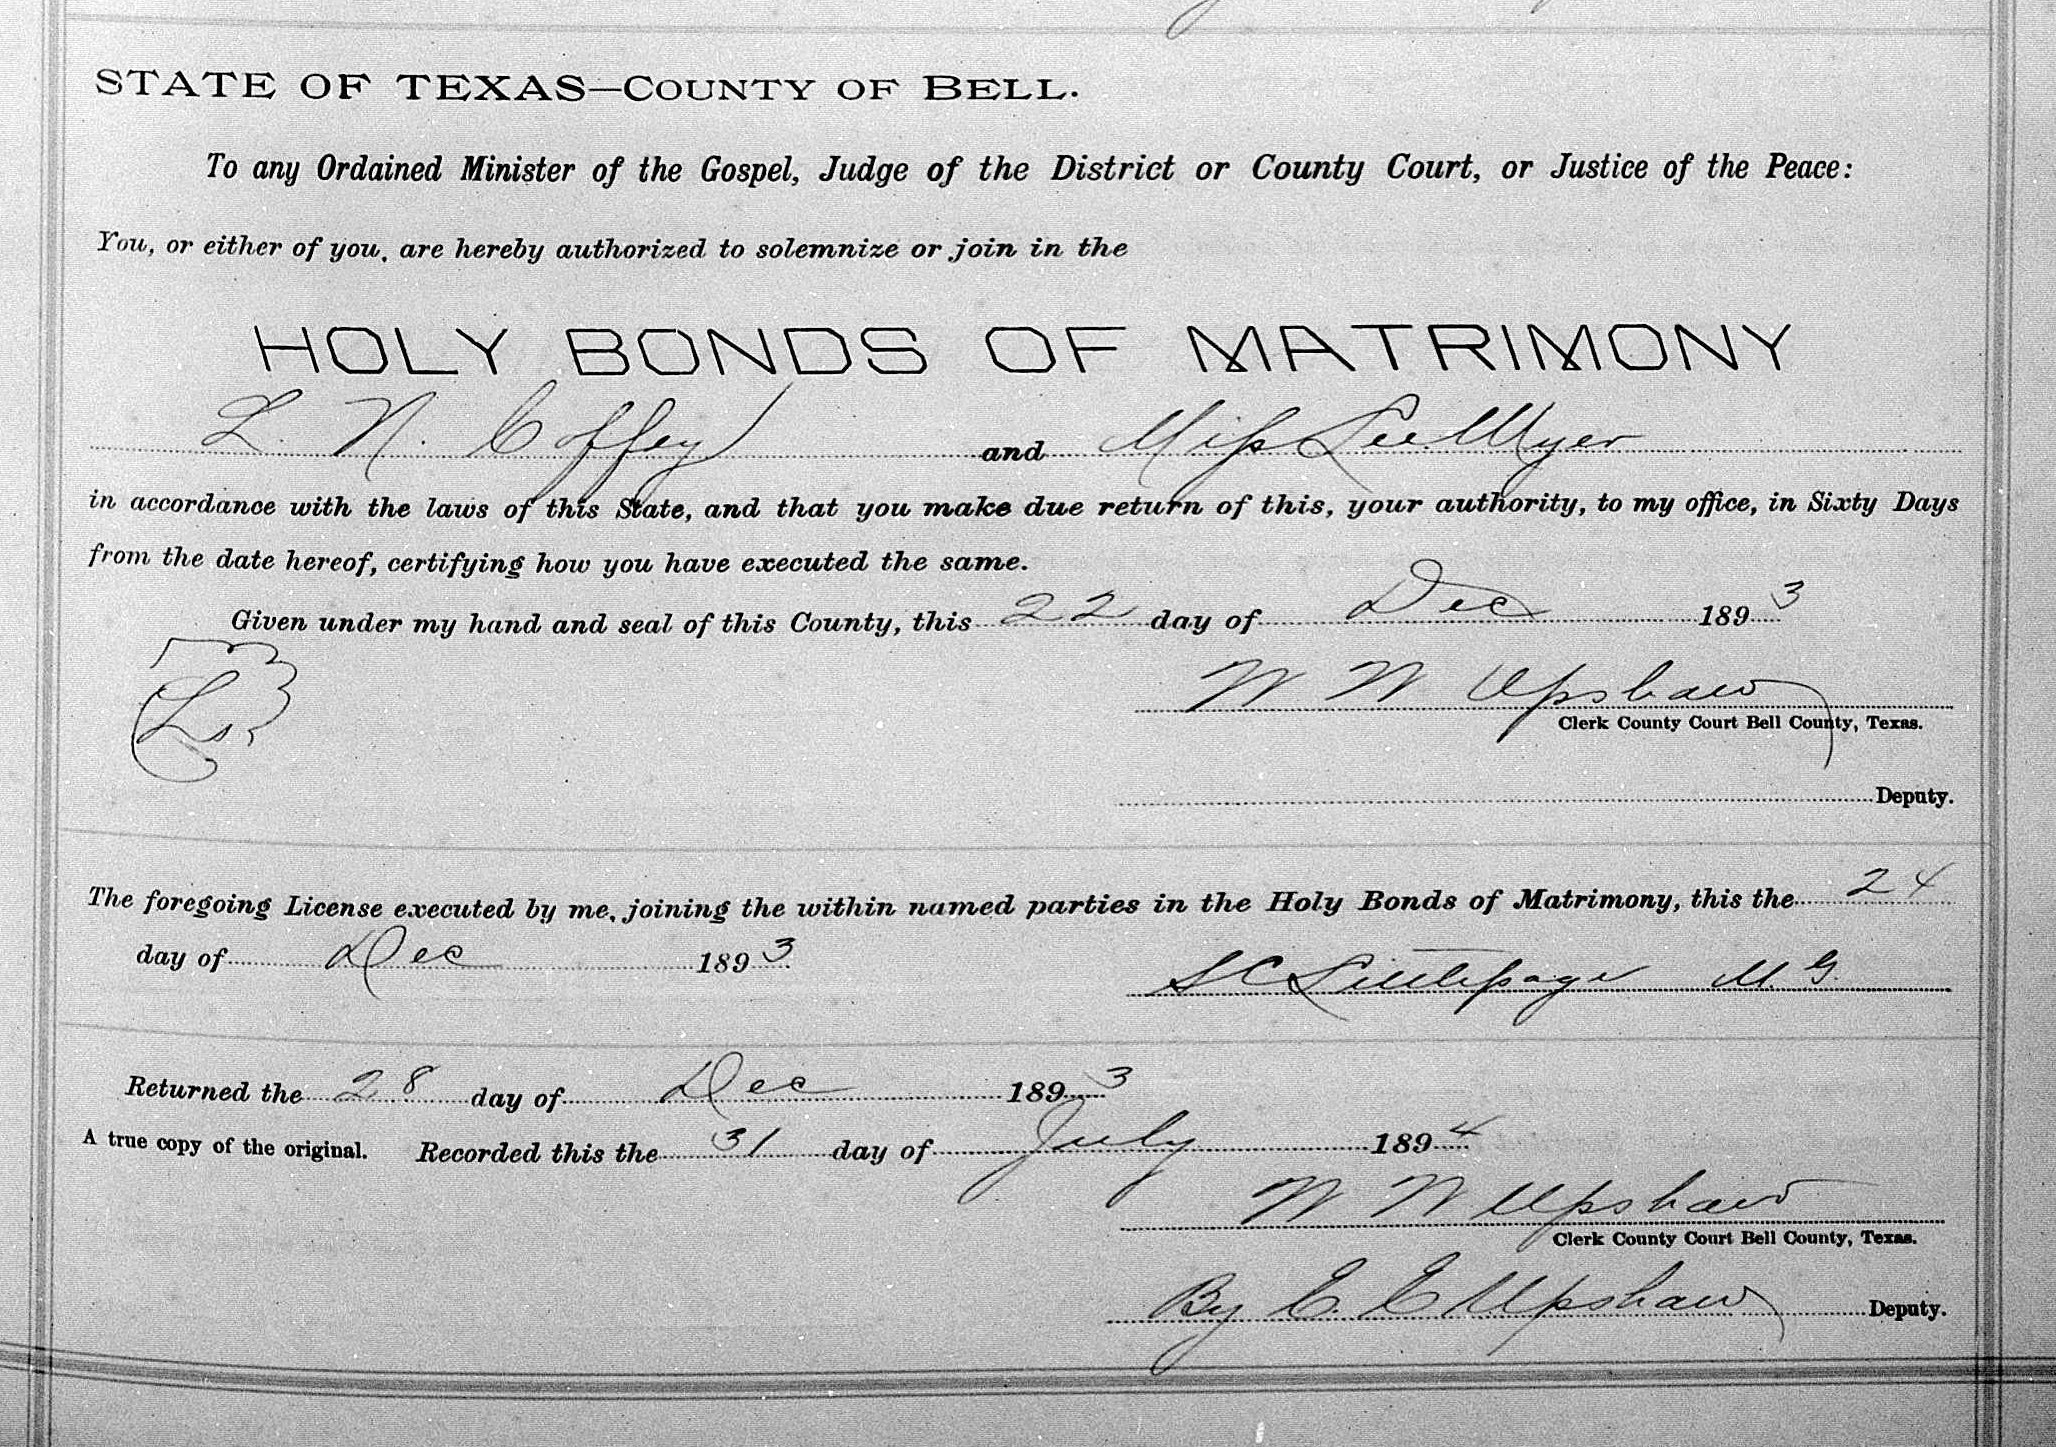 STATE OF TEXAS—COUNTY OF BELL.
To any Ordained Minister of the Gospel, Judge of the District or County Court, or Justice of the Peace:
You, or either of you, are hereby authorized to solemnize or join in the
HOLY BONDS OF MATRIMONY
L. N. Coffey and Miss Lee Myer
in accordance with the laws of this State, and that you make due return of this, your authority, to my office, in Sixty Days
from the date hereof, certifying how you have executed the same.
Given under my hand and seal of this County, this 22 day of Dec 1893
Ls
W W Upshaw
Clerk County Court Bell County, Texas.
Deputy.
The foregoing License executed by me, joining the within named parties in the Holy Bonds of Matrimony, this the 24
day of Dec 1893
S C Littlepage M. G.
Returned the 28 day of Dec 1893
A true copy of the original. Recorded this the 31 day of July 1894
W W Upshaw
Clerk County Court Bell County, Texas.
By C. C Upshaw Deputy.